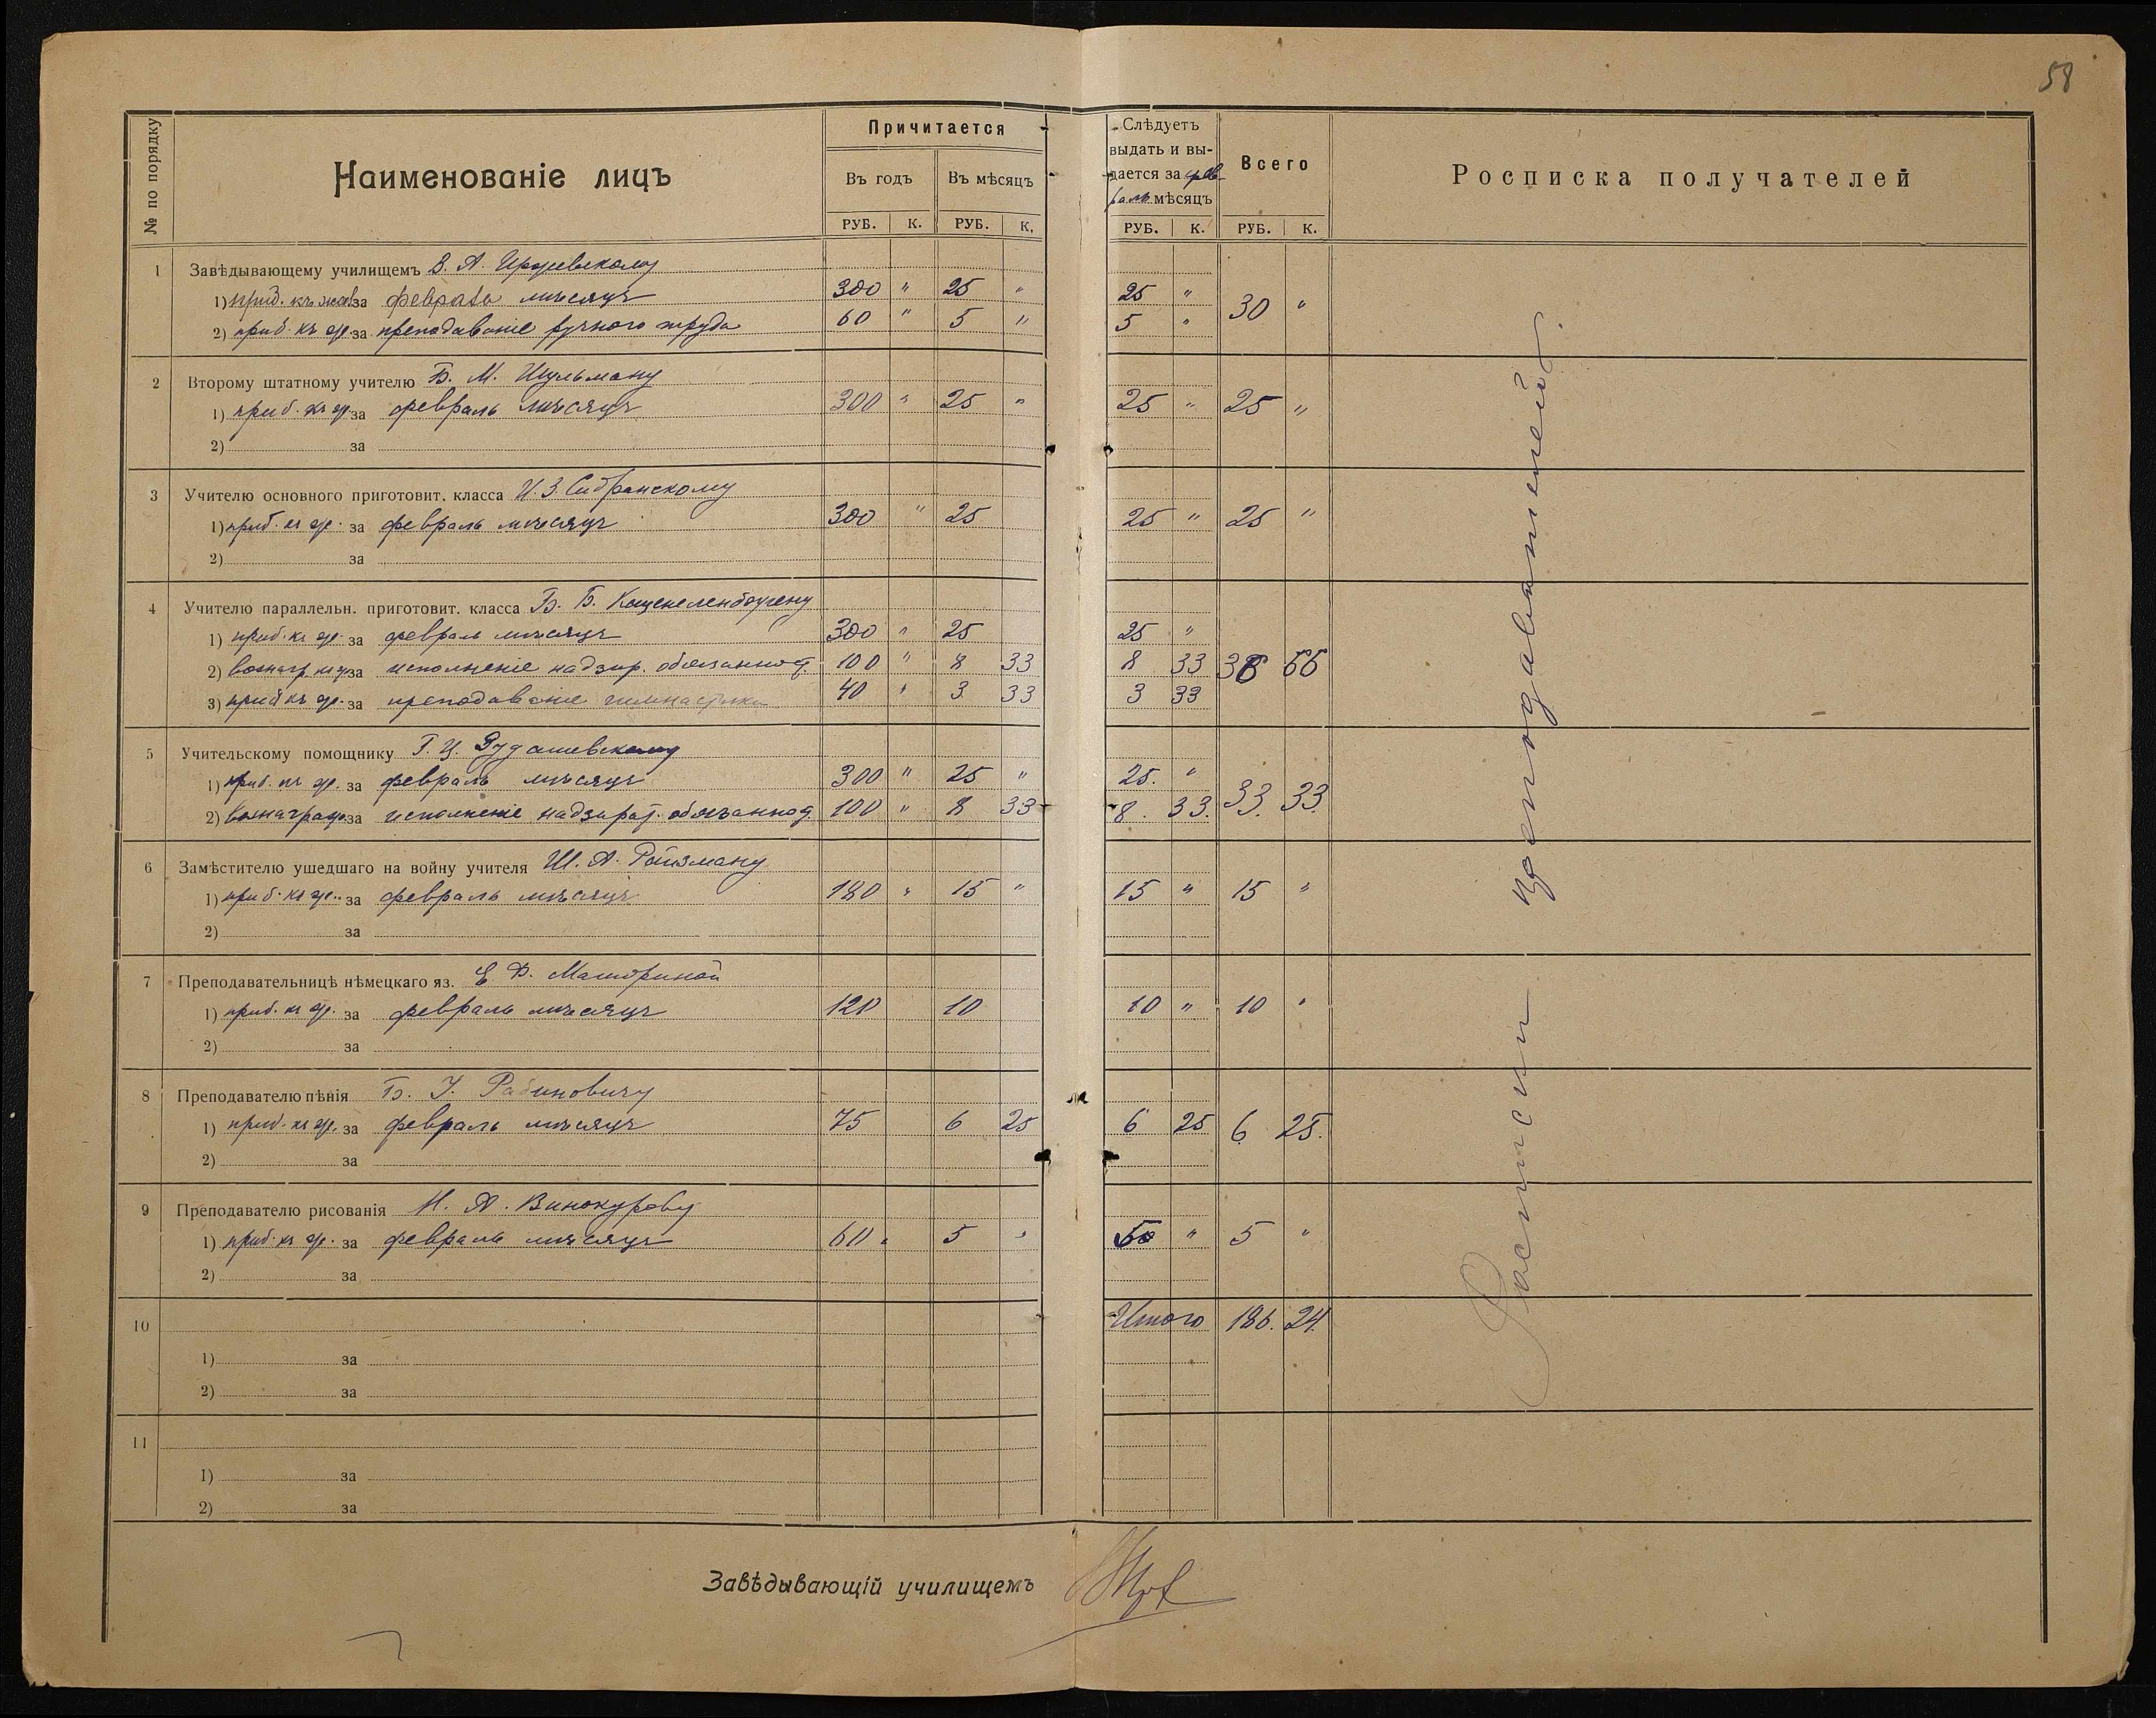 58
№ по порядку
Наименованіе лицъ
Причитается
Въ годъ
Въ мѣсяцъ
РУБ. К. РУБ. К.
Слѣдуетъ
выдать и вы-
дается за фев-
раль мѣсяцъ
Всего
РУБ. К. РУБ. К.
Росписка получателей
1 Завѣдывающему училищемъ В. А.
1) приб. къ жал. за февраль мѣсяцъ 300 " 25 " 25 " 30 "
2) приб. къ ж. за преподаваніе ручного труда 60 " 5 " 5 "
2 Второму штатному учителю Б. М. Шульману
1) приб. къ ж. за февраль мѣсяцъ 300 " 25 " 25 " 25 "
2) за
3 Учителю основного приготовит. класса И. З.
1) приб. къ ж. за февраль мѣсяцъ 300 " 25 25 " 25 "
2) за
4 Учителю параллельн. приготовит. класса Б. Б. Каценеленбогену
1) приб. къ ж. за февраль мѣсяцъ 300 " 25 25 "
2) вознагр. за исполненіе надзир. обязанност. 100 " 8 33 8 33 36 66
3) приб. къ ж. за преподаваніе гимнастики 40 " 3 33 3 33
5 Учительскому помощнику Г. Ц. Рудашевскому
1) приб. къ ж. за февраль мѣсяцъ 300 " 25 " 25. "
2) вознагражд. за исполненіе надзират. обязанност. 100 " 8 33 8. 33. 33. 33
6 Замѣстителю ушедшаго на войну учителя Ш. А. Ройзману
1) приб. къ ж. за февраль мѣсяцъ 180 " 15 " 15 " 15 "
2) за
7 Преподавательницѣ нѣмецкаго яз. Е.
1) приб. къ ж. за февраль мѣсяцъ 120 10 10 " 10 "
2) за
8 Преподавателю пѣнія Б. І. Рабиновичу
1) приб. къ ж. за февраль мѣсяцъ 75 6 25 6 25 6 25.
2) за
9 Преподавателю рисованія Н. А. Винокурову
1) приб. къ ж. за февраль мѣсяцъ 60 " 5 " 5 " 5 "
2) за
10 Итого 186. 24.
1) за
2) за
11
1) за
2) за
Росписи преподавателей.
Завѣдывающій училищемъ